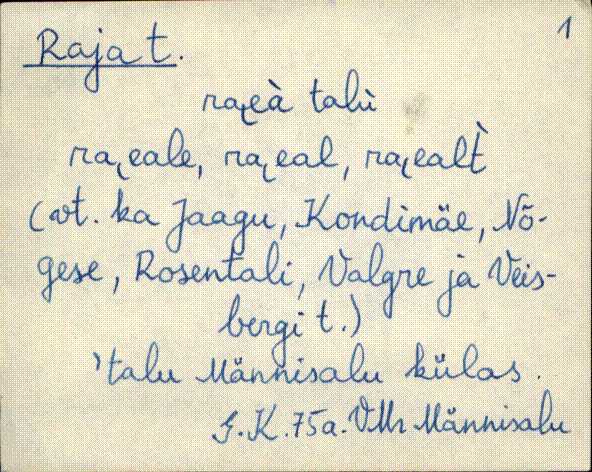 Raja t. 1
ra̮eà talù
ra̮eale, ra̮eal, ra̮ealt̀
(vt. ka Jaagu, Kondimäe, Nõ-
gese, Rosentali, Valgre ja Veis-
bergi t.)
'talu Männisalu külas.
G.K. 75a. VMr Männisalu